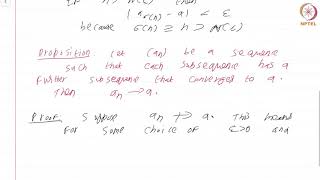 then
| a_σ(n) - a | < ε
because σ(n) ≥ n > N(ε)
NPTEL
Proposition: Let (an) be a sequence
such that each subsequence has a
further subsequence that converges to a.
Then an → a.
Proof: Suppose an ↛ a. This means
for some choice of ε>0 and